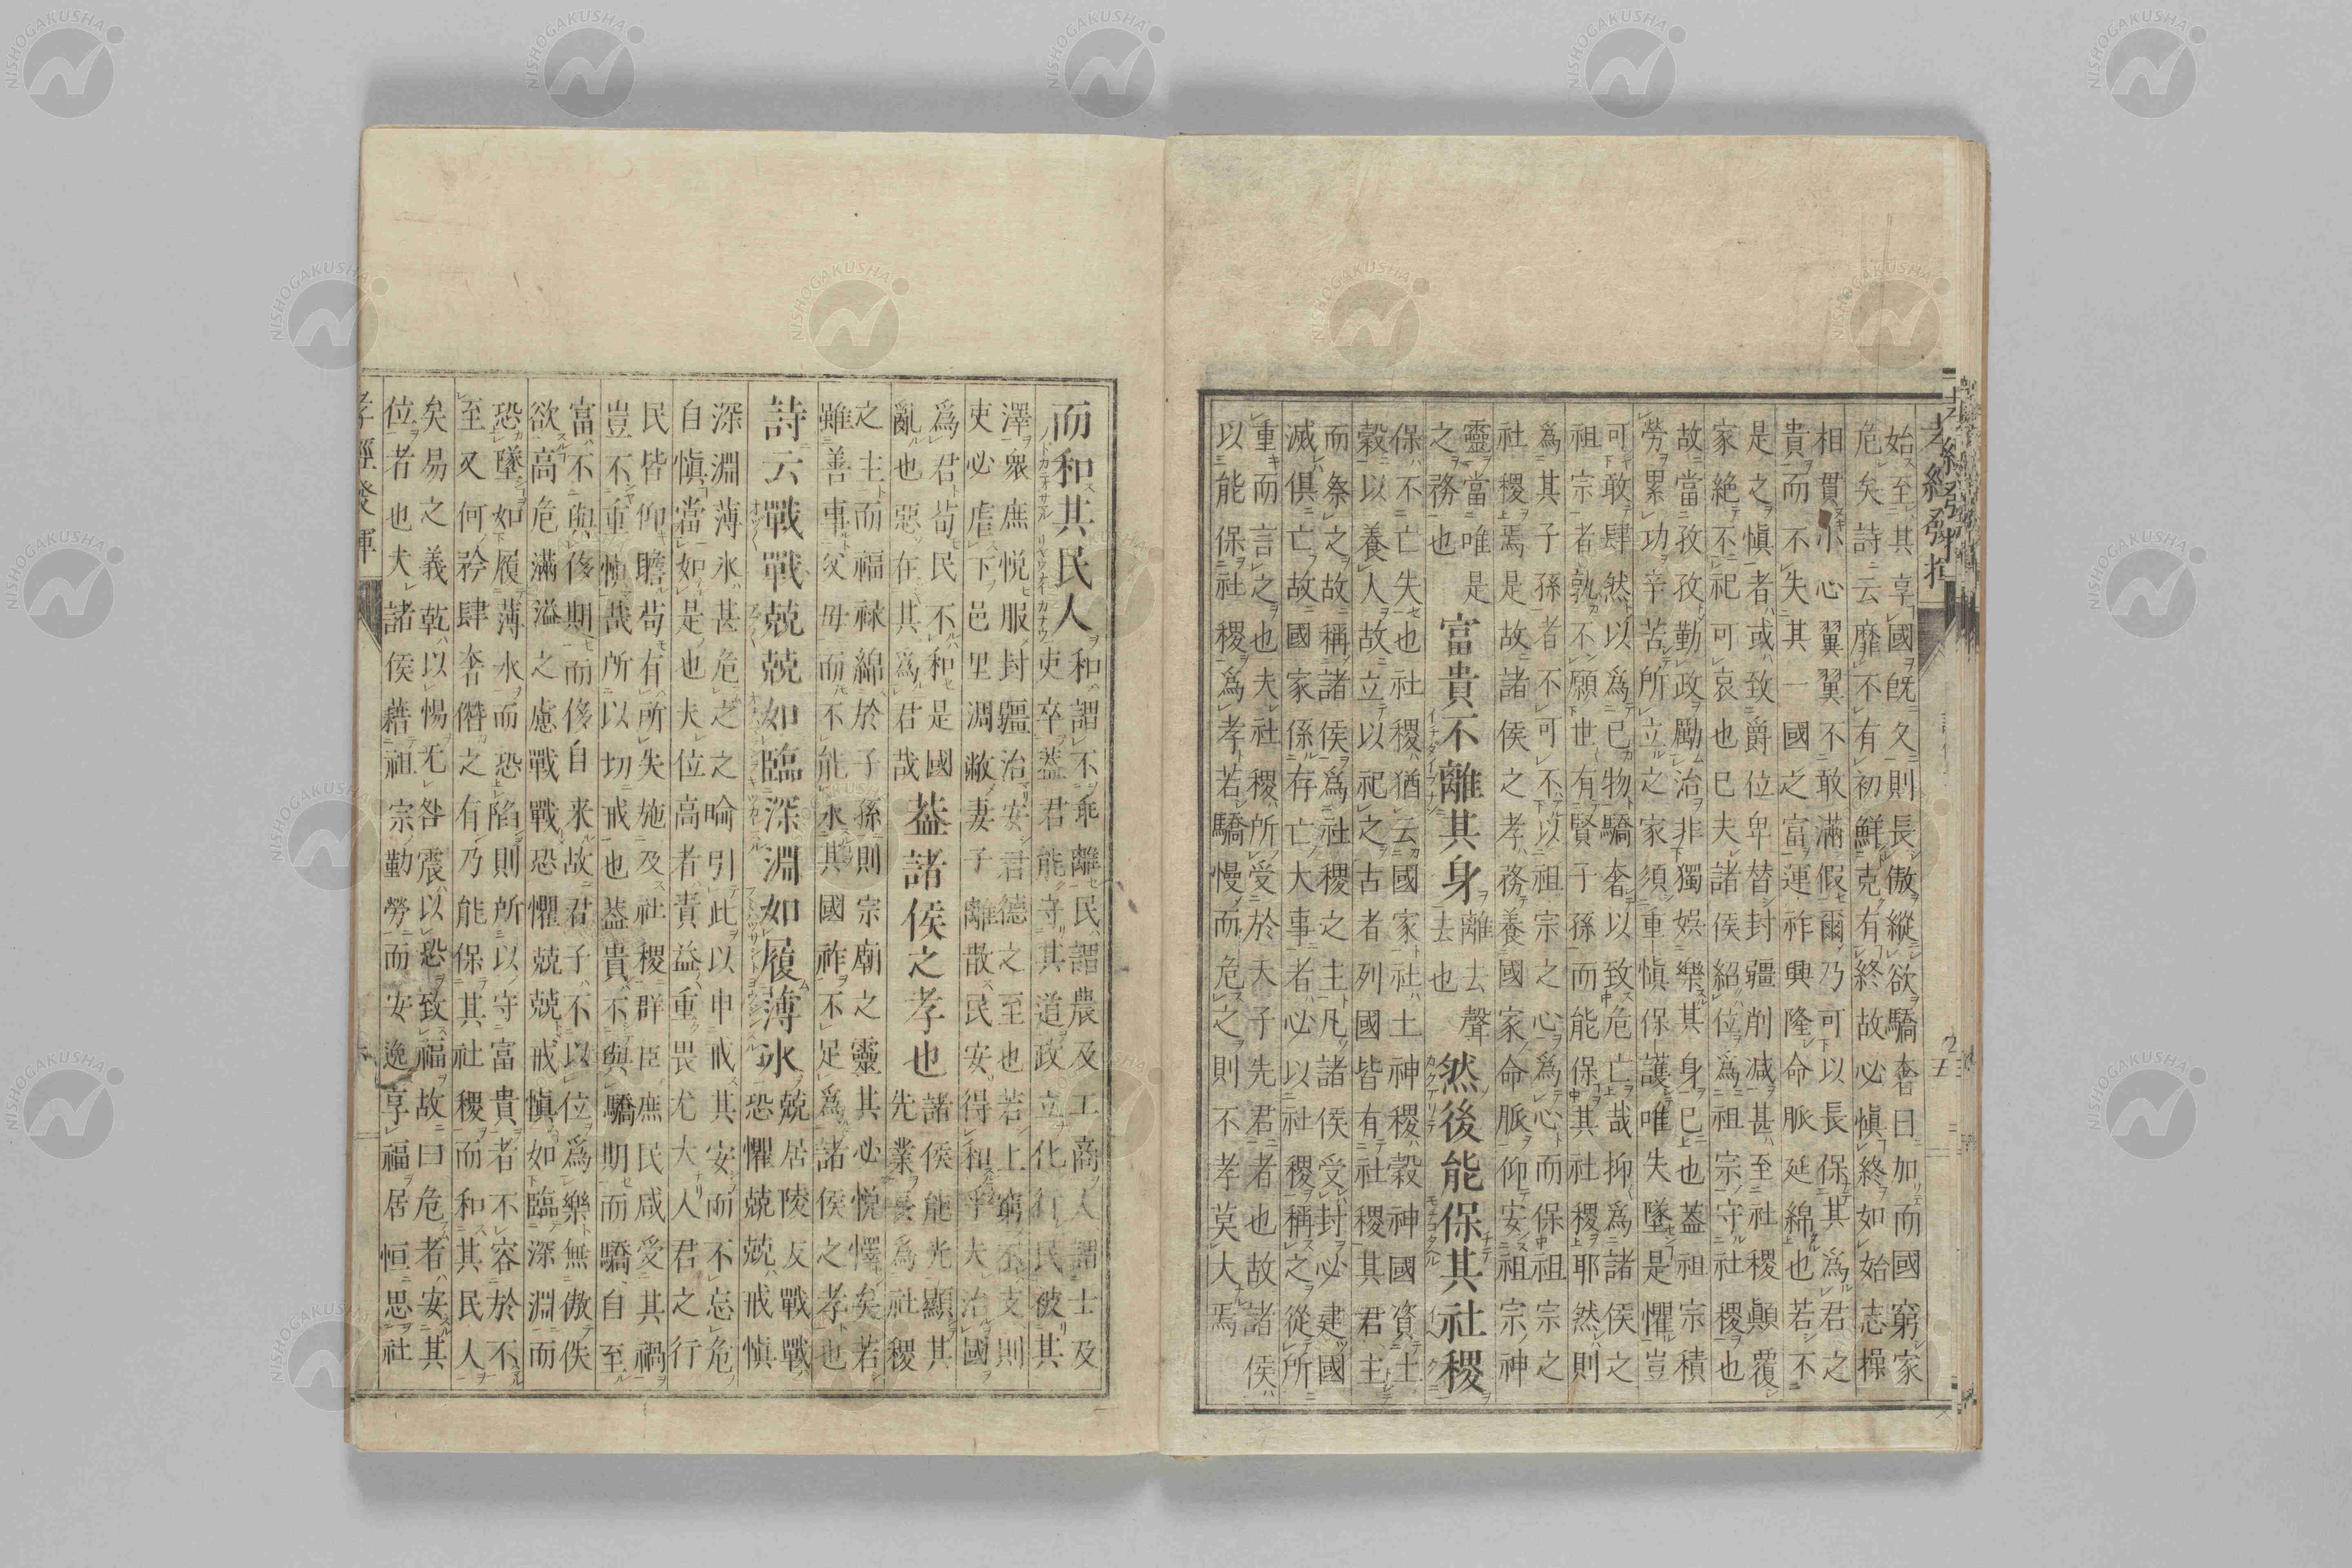 始至其享國既久則長傲縱欲驕奢曰加而國窮家
危矣詩云靡不有初鮮克有終故必慎終如始志操
相貫小心翼翼不敢滿假爾乃可以長保其爲君之
貴而不失其一國之富運祚興隆命脈延綿也若不
是之愼者或致爵位卑替封疆削減甚至社稷顚覆
家絶不祀可哀也已夫諸侯紹位爲祖宗守社稷也
故當孜孜勤政勵治非獨娯樂其身已也蓋祖宗積
勞累功辛苦所立之家須重愼保護唯失墜是懼豈
可敢肆然以爲已物驕奢以致危亡哉抑爲諸侯之
祖宗者孰不願世有賢子孫而能保其社稷耶然則
爲其子孫者不可不以祖宗之心爲心而保祖宗之
社稷焉是故諸侯之孝務養國家命脈仰安祖宗神
靈當唯是
之務也
富貴不離其身
離去聲
去也
然後能保其社稷
保不亡失也社稷猶云國家社土神稷穀神國資土
穀以養人故立以祀之古者列國皆有社稷其君主
而祭之故稱諸侯爲社稷之主凡諸侯受封必建國
滅俱亡故國家係存亡大事者必以社稷稱之從所
重而言之也夫社稷所受於天子先君者也故諸侯
以能保社稷爲孝若驕慢而危之則不孝莫大焉
而和其民人
和謂不乖離民謂農及工商人謂士及
吏卒蓋君能守其道政立化行民被其
澤衆庶悦服封疆治安君德之至也若上窮不支則
吏必虐下邑里凋敝妻子離散民安得和乎夫治國
爲君苟民不和是國
亂也惡在其爲君哉
蓋諸侯之孝也
諸侯能光顯其
先業長爲社稷
之主而福祿綿於子孫則宗廟之靈其必悦懌矣若
雖善事父母而不能永其國祚不足爲諸侯之孝也
詩云戰戰兢兢如臨深淵如履薄冰
兢居陵反戰戰
恐懼兢兢戒愼
深淵薄氷甚危之之喩引此以申戒其安而不忘危
自愼當如是也夫位高者責益重畏尤大人君之行
民皆仰瞻苟有所失施及社稷群臣庶民咸受其禍
豈不重愼哉所以切戒也蓋貴不與驕期而驕自至
富不與侈期而侈自來故君子不以位爲樂無傲佚
欲高危滿溢之慮戰戰恐懼兢兢戒愼如臨深淵而
恐墜如履薄氷而恐陷則所以守富貴者不容於不
至又何矜肆奢僭之有乃能保其社稷而和其民人
矣易之義乾以惕无咎震以恐致福故曰危者安其
位者也夫諸侯藉祖宗勤勞而安逸享福居恒思社
孝經發揮